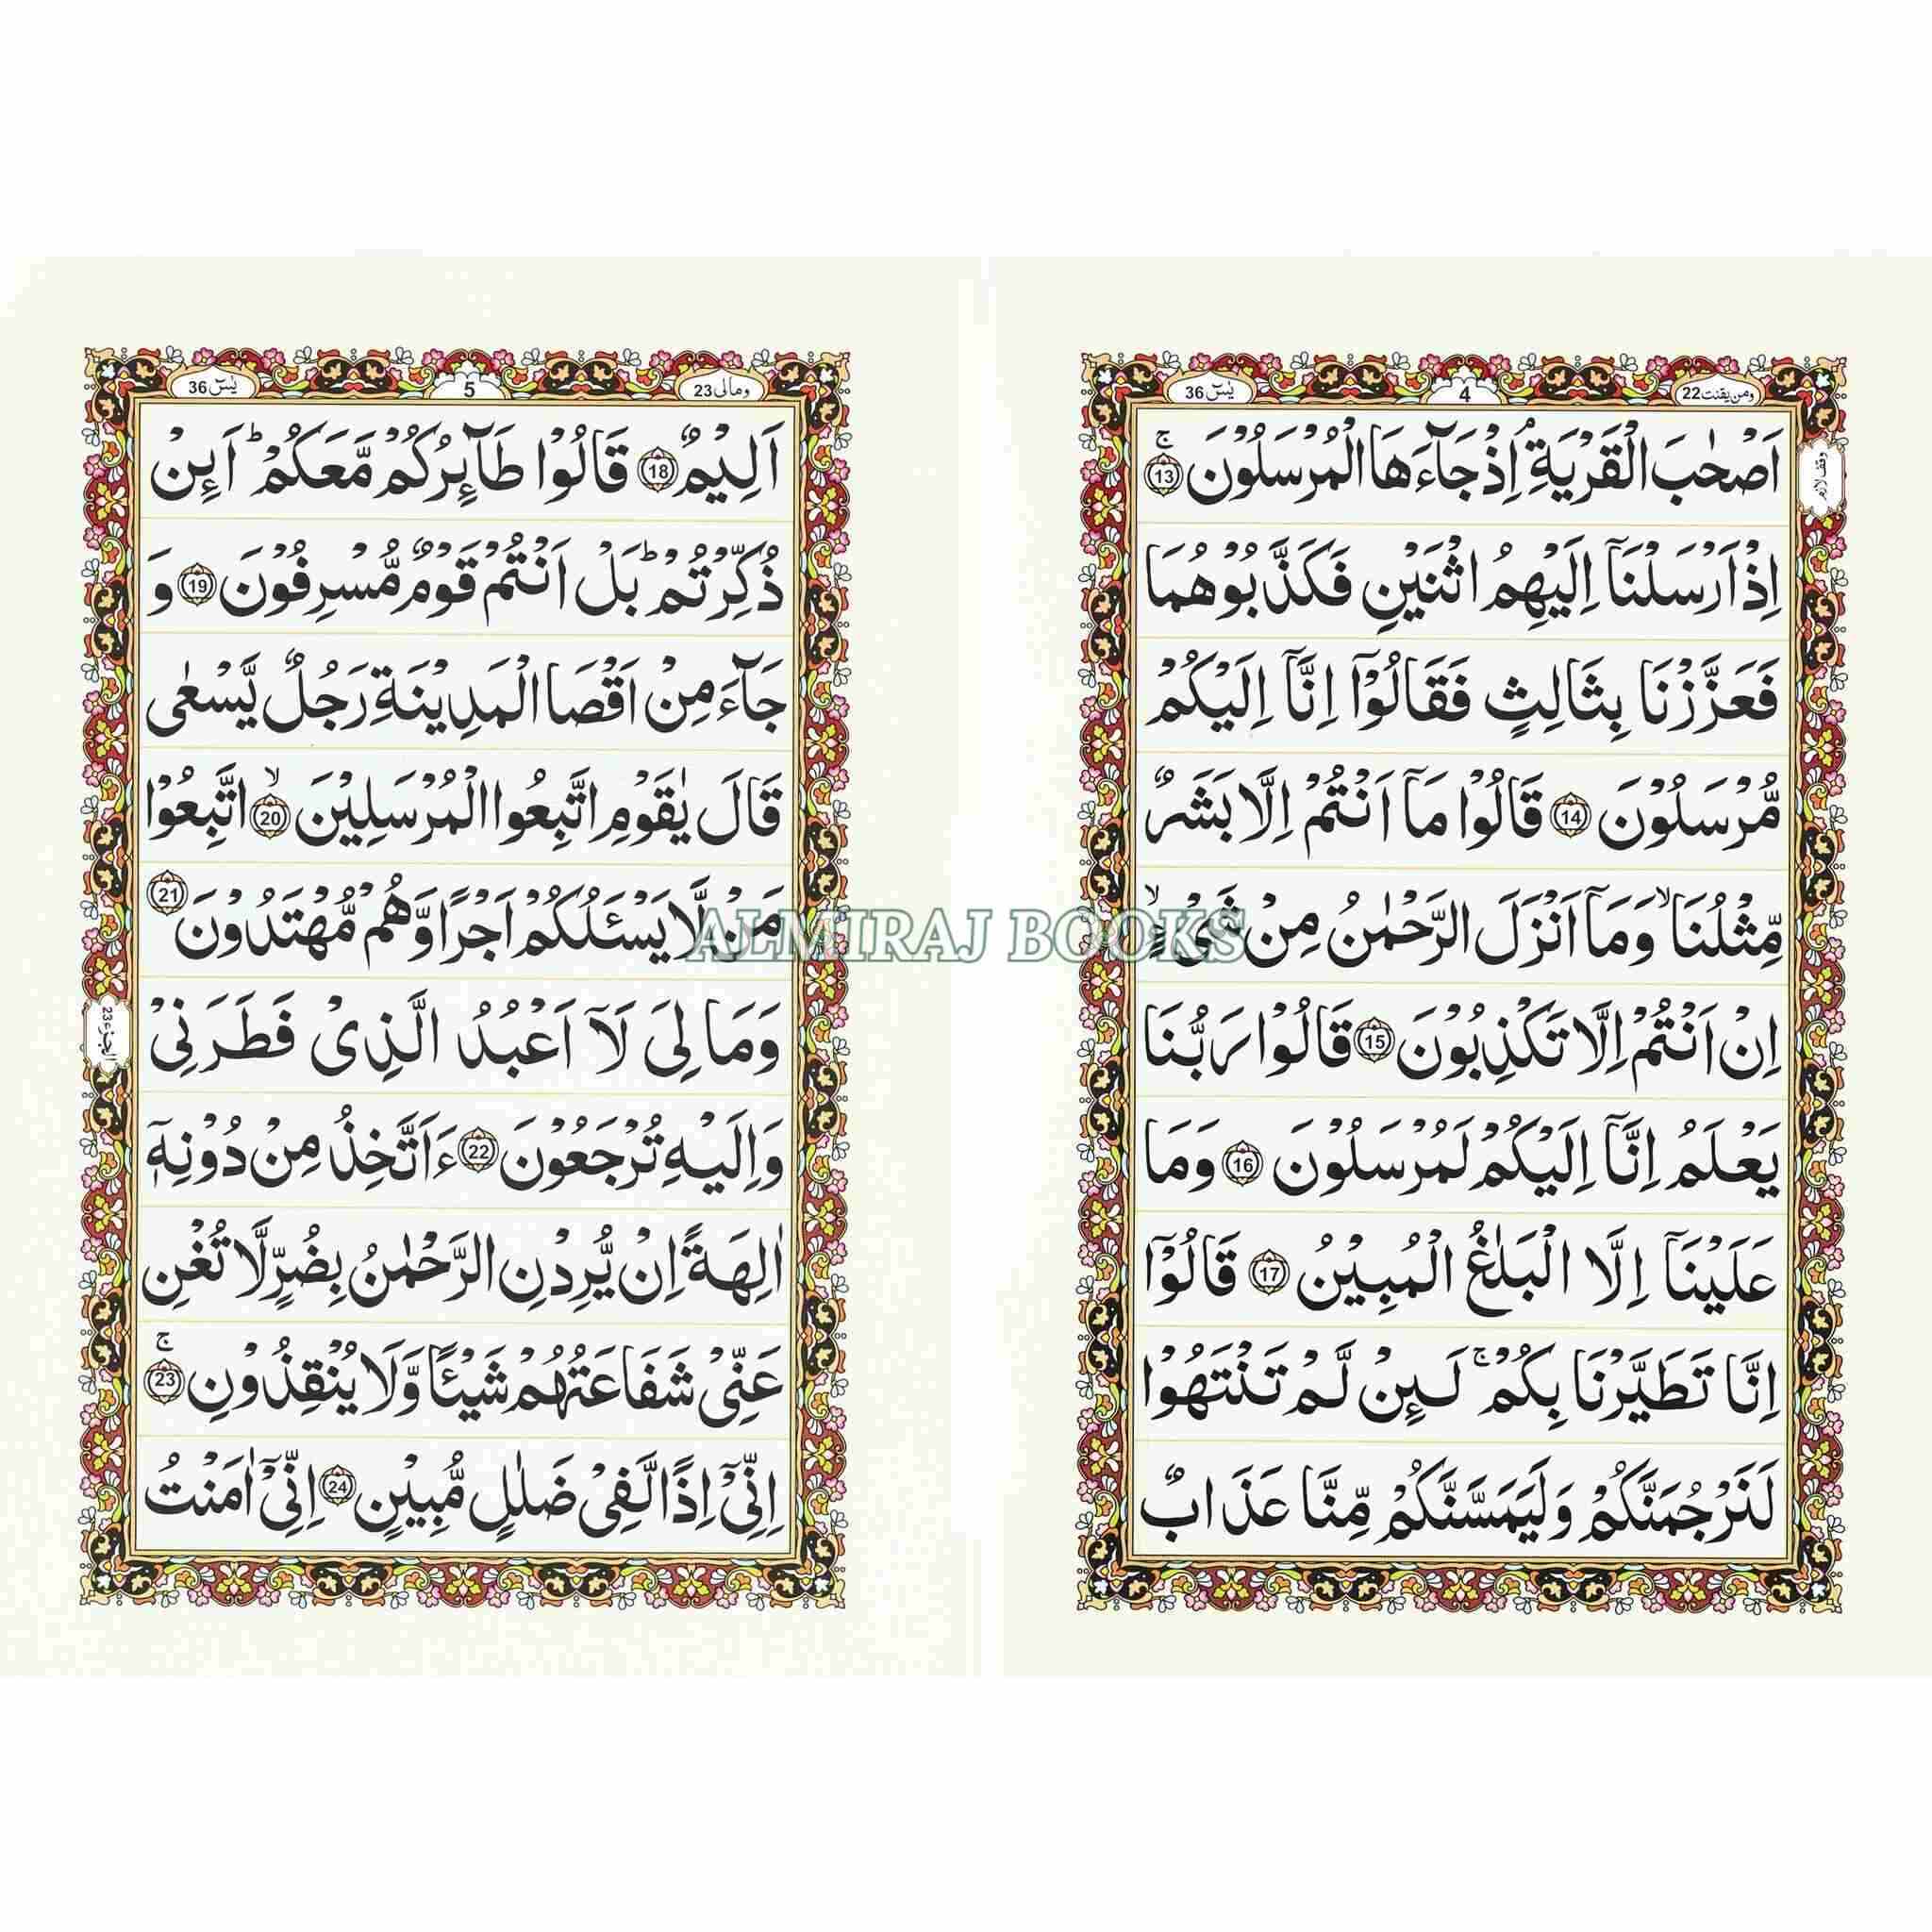 ومن يقنت 22
4
يٰسٓ 36
وقف لازم
اَصْحٰبَ الْقَرْيَةِ ۘ اِذْ جَآءَهَا الْمُرْسَلُوْنَ 13 ۚ
اِذْ اَرْسَلْنَآ اِلَيْهِمُ اثْنَيْنِ فَكَذَّبُوْهُمَا
فَعَزَّزْنَا بِثَالِثٍ فَقَالُوْٓا اِنَّآ اِلَيْكُمْ
مُّرْسَلُوْنَ 14 قَالُوْا مَآ اَنْتُمْ اِلَّا بَشَرٌ
مِّثْلُنَا ۙ وَمَآ اَنْزَلَ الرَّحْمٰنُ مِنْ شَىْءٍ ۙ
اِنْ اَنْتُمْ اِلَّا تَكْذِبُوْنَ 15 قَالُوْا رَبُّنَا
يَعْلَمُ اِنَّآ اِلَيْكُمْ لَمُرْسَلُوْنَ 16 وَمَا
عَلَيْنَآ اِلَّا الْبَلٰغُ الْمُبِيْنُ 17 قَالُوْٓا
اِنَّا تَطَيَّرْنَا بِكُمْ ۚ لَئِنْ لَّمْ تَنْتَهُوْا
لَنَرْجُمَنَّكُمْ وَلَيَمَسَّنَّكُمْ مِّنَّا عَذَابٌ
ومالى 23
5
يٰسٓ 36
اَلِيْمٌ 18 قَالُوْا طَآئِرُكُمْ مَّعَكُمْ ؕ اَئِنْ
ذُكِّرْتُمْ ؕ بَلْ اَنْتُمْ قَوْمٌ مُّسْرِفُوْنَ 19 وَ
جَآءَ مِنْ اَقْصَا الْمَدِيْنَةِ رَجُلٌ يَّسْعٰى
قَالَ يٰقَوْمِ اتَّبِعُوا الْمُرْسَلِيْنَ 20 ۙ اتَّبِعُوْا
مَنْ لَّا يَسْئَلُكُمْ اَجْرًا وَّهُمْ مُّهْتَدُوْنَ 21
وَمَا لِىَ لَآ اَعْبُدُ الَّذِىْ فَطَرَنِىْ
وَاِلَيْهِ تُرْجَعُوْنَ 22 ءَاَتَّخِذُ مِنْ دُوْنِهٖٓ
اٰلِهَةً اِنْ يُّرِدْنِ الرَّحْمٰنُ بِضُرٍّ لَّا تُغْنِ
عَنِّىْ شَفَاعَتُهُمْ شَيْئًا وَّلَا يُنْقِذُوْنِ 23 ۚ
اِنِّىْٓ اِذًا لَّفِىْ ضَلٰلٍ مُّبِيْنٍ 24 اِنِّىْٓ اٰمَنْتُ
الجزء 23
ALMIRAJ BOOKS